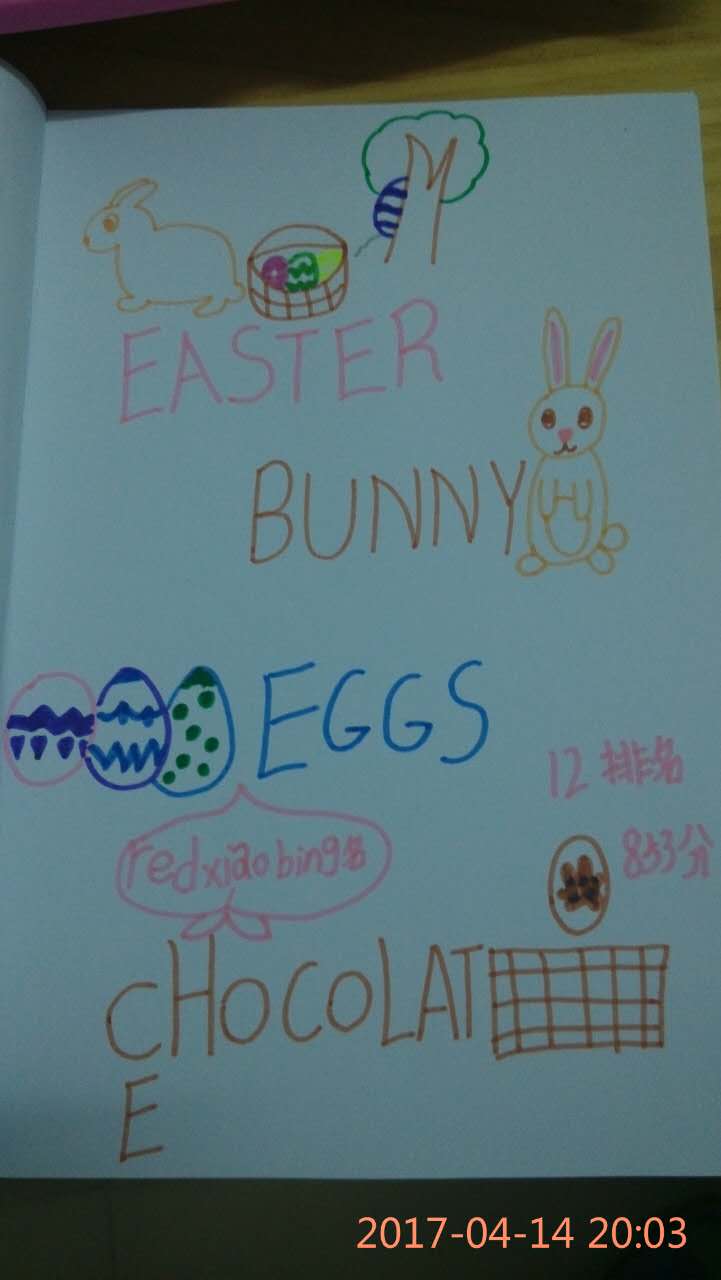 EASTER
BUNNY
EGGS
12 排名
853分
redxiaobing名
CHOCOLAT
E
2017-04-14 20:03